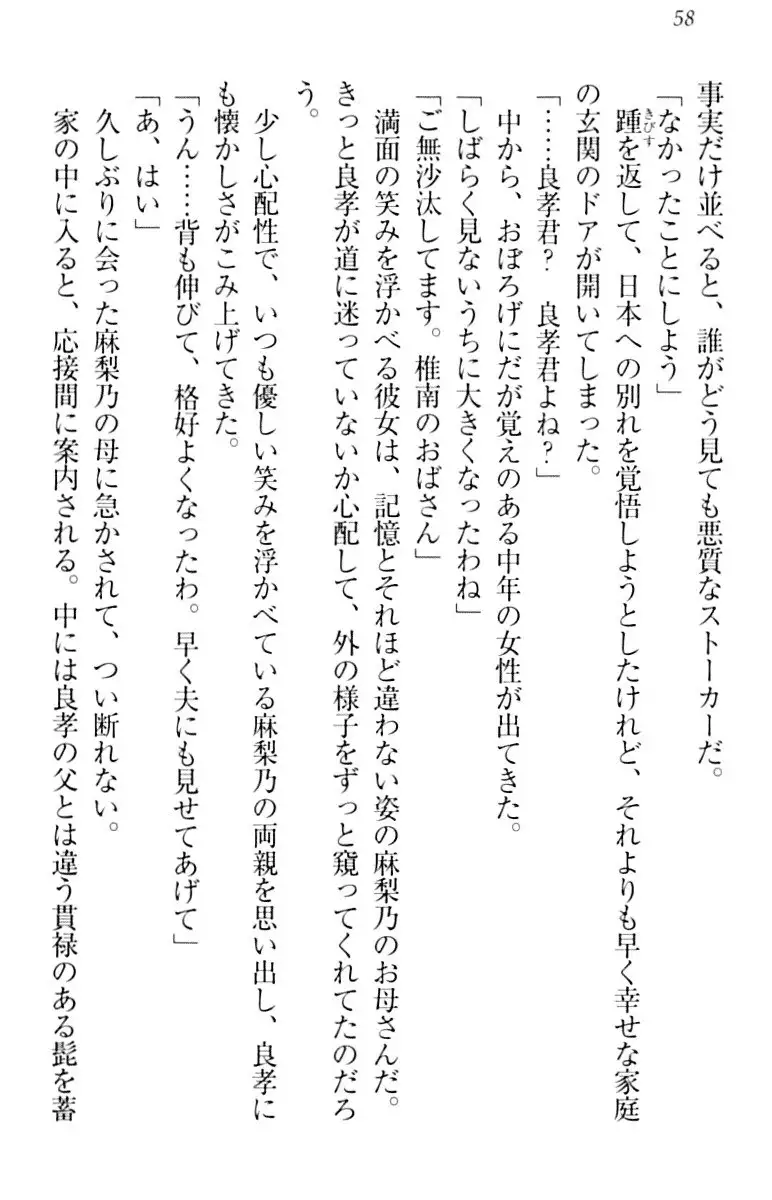 58
事実だけ並べると、誰がどう見ても悪質なストーカーだ。
「なかったことにしよう」
踵を返して、日本への別れを覚悟しようとしたけれど、それよりも早く幸せな家庭
きびす
の玄関のドアが開いてしまった。
「……良孝君？　良孝君よね？」
中から、おぼろげにだが覚えのある中年の女性が出てきた。
「しばらく見ないうちに大きくなったわね」
「ご無沙汰してます。椎南のおばさん」
満面の笑みを浮かべる彼女は、記憶とそれほど違わない姿の麻梨乃のお母さんだ。
きっと良孝が道に迷っていないか心配して、外の様子をずっと窺ってくれてたのだろ
う。
少し心配性で、いつも優しい笑みを浮かべている麻梨乃の両親を思い出し、良孝に
も懐かしさがこみ上げてきた。
「うん……背も伸びて、格好よくなったわ。早く夫にも見せてあげて」
「あ、はい」
久しぶりに会った麻梨乃の母に急かされて、つい断れない。
家の中に入ると、応接間に案内される。中には良孝の父とは違う貫禄のある髭を蓄